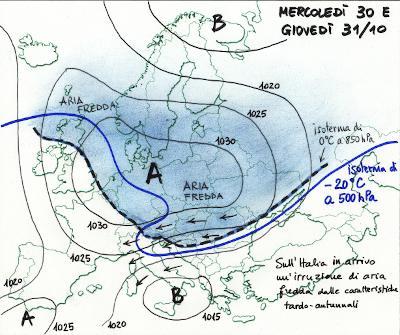 MERCOLEDÌ 30 E
GIOVEDÌ 31/10
B
1020
1025
1030
ARIA
FREDDA
isoterma di
0°C a 850 hPa
A
ARIA
FREDDA
isoterma di
-20°C
a 500 hPa
1030
1025
1020
Sull'Italia in arrivo
un'irruzione di aria
fredda dalle caratteristiche
tardo-autunnali
B
1015
A
1025
1025
1020